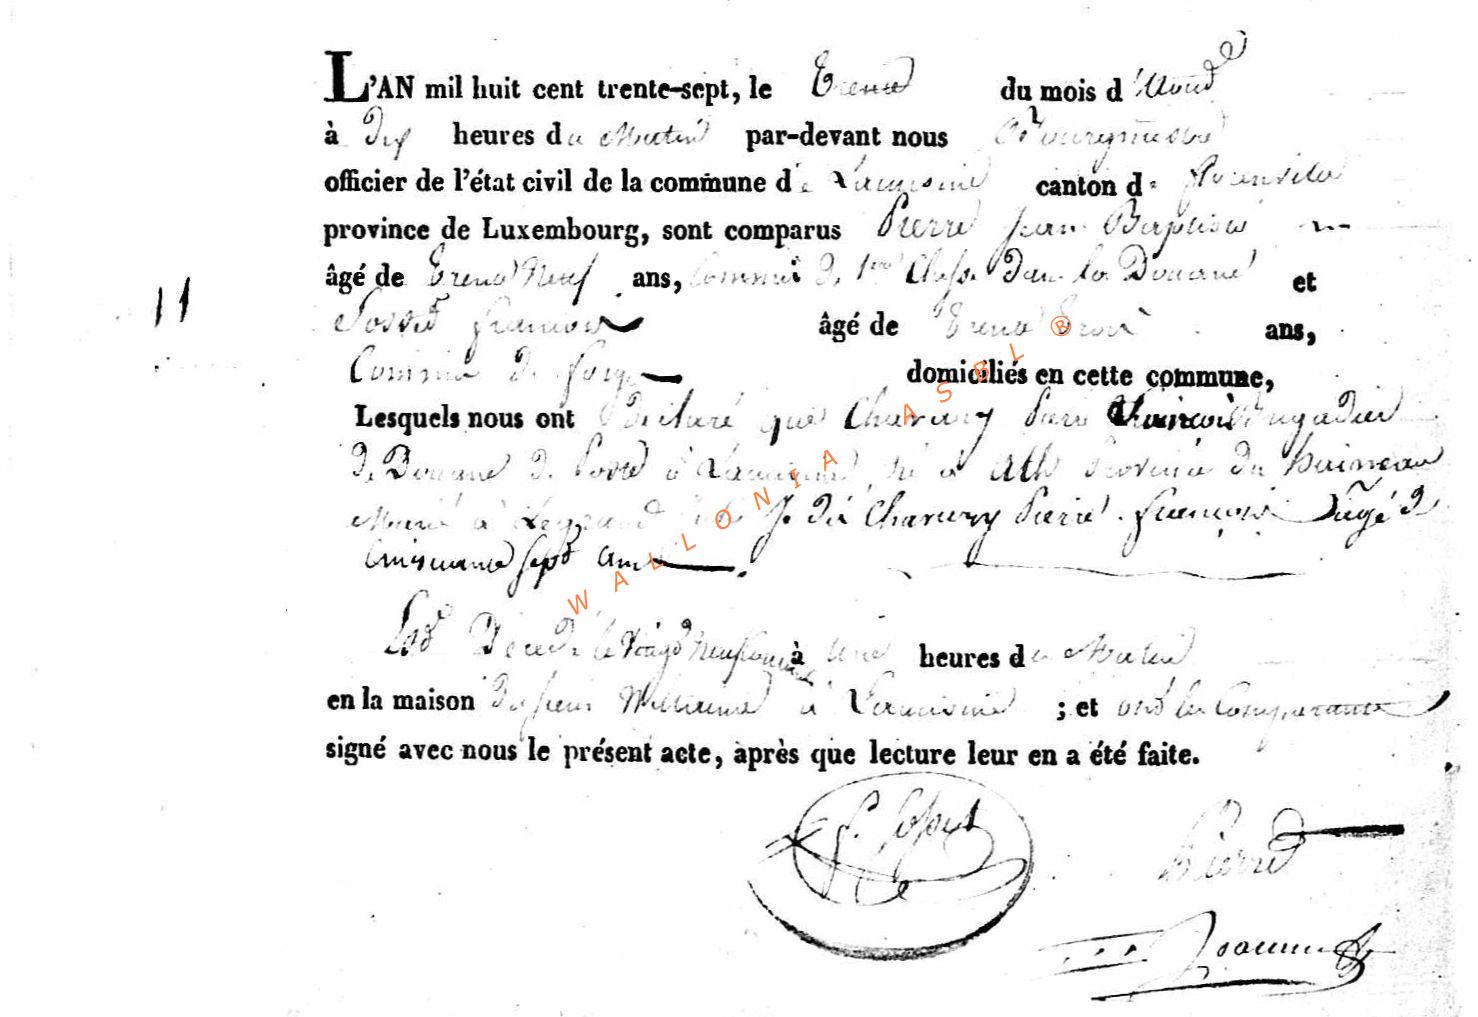 L'AN mil huit cent trente-sept, le Trente du mois d'Aout
à dix heures du Matin par-devant nous Bourgmestre
officier de l'état civil de la commune de Lacuisine canton de Florenville
province de Luxembourg, sont comparus Pierre Jean Baptiste
âgé de trente Neuf ans, Commis de 1ere Classe dans la Douane et
11
François âgé de Trente trois ans,
Commis de forge domiciliés en cette commune,
Lesquels nous ont Déclaré que Charury Pierre François Brigadier
de Douane de Poste à Lacuisine né à Ath Province du haineau
Marié à dit Charury Pierre François agé de
Cinquante sept ans
Est Décédé le Vingt Neuf courant à Une heures du Matin
en la maison du sieur à Lacuisine ; et ont les Comparants
signé avec nous le présent acte, après que lecture leur en a été faite.
Pierre
WALLONIA ASBL ®